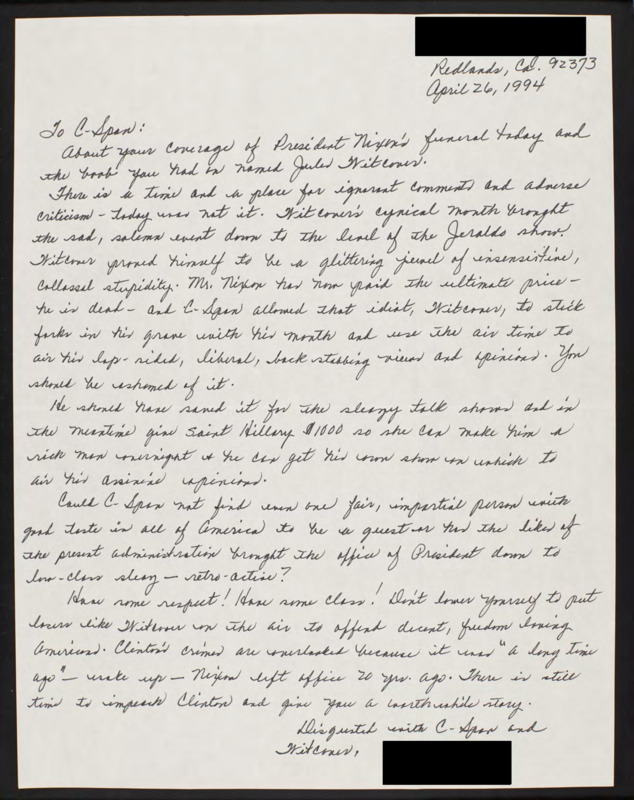 Redlands, Ca. 92373
April 26, 1994
To C-Span:
About your coverage of President Nixon's funeral today and
the boob you had on named Jules Witcover.
There is a time and a place for ignorant comments and adverse
criticism - today was not it. Witcover's cynical mouth brought
the sad, solemn event down to the level of the Jeraldo show.
Witcover proved himself to be a glittering jewel of insensitive,
collossal stupidity. Mr. Nixon has now paid the ultimate price -
he is dead - and C-Span allowed that idiot, Witcover, to stick
forks in his grave with his mouth and use the air time to
air his lop-sided, liberal, back stabbing views and opinions. You
should be ashamed of it.
He should have saved it for the sleazy talk shows and in
the meantime give Saint Hillary $1000 so she can make him a
rich man overnight & he can get his own show on which to
air his asinine opinions.
Could C-Span not find even one fair, impartial person with
good taste in all of America to be a guest or has the likes of
the present administration brought the office of President down to
low-class sleaz - retro-active?
Have some respect! Have some class! Don't lower yourself to put
losers like Witcover on the air to offend decent, freedom loving
Americans. Clinton's crimes are overlooked because it was "a long time
ago" - wake up - Nixon left office 20 yrs. ago. There is still
time to impeach Clinton and give you a worthwhile story.
Disgusted with C-Span and
Witcover,